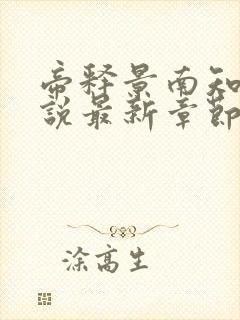 帝释景南知
說最新章節
涂高生